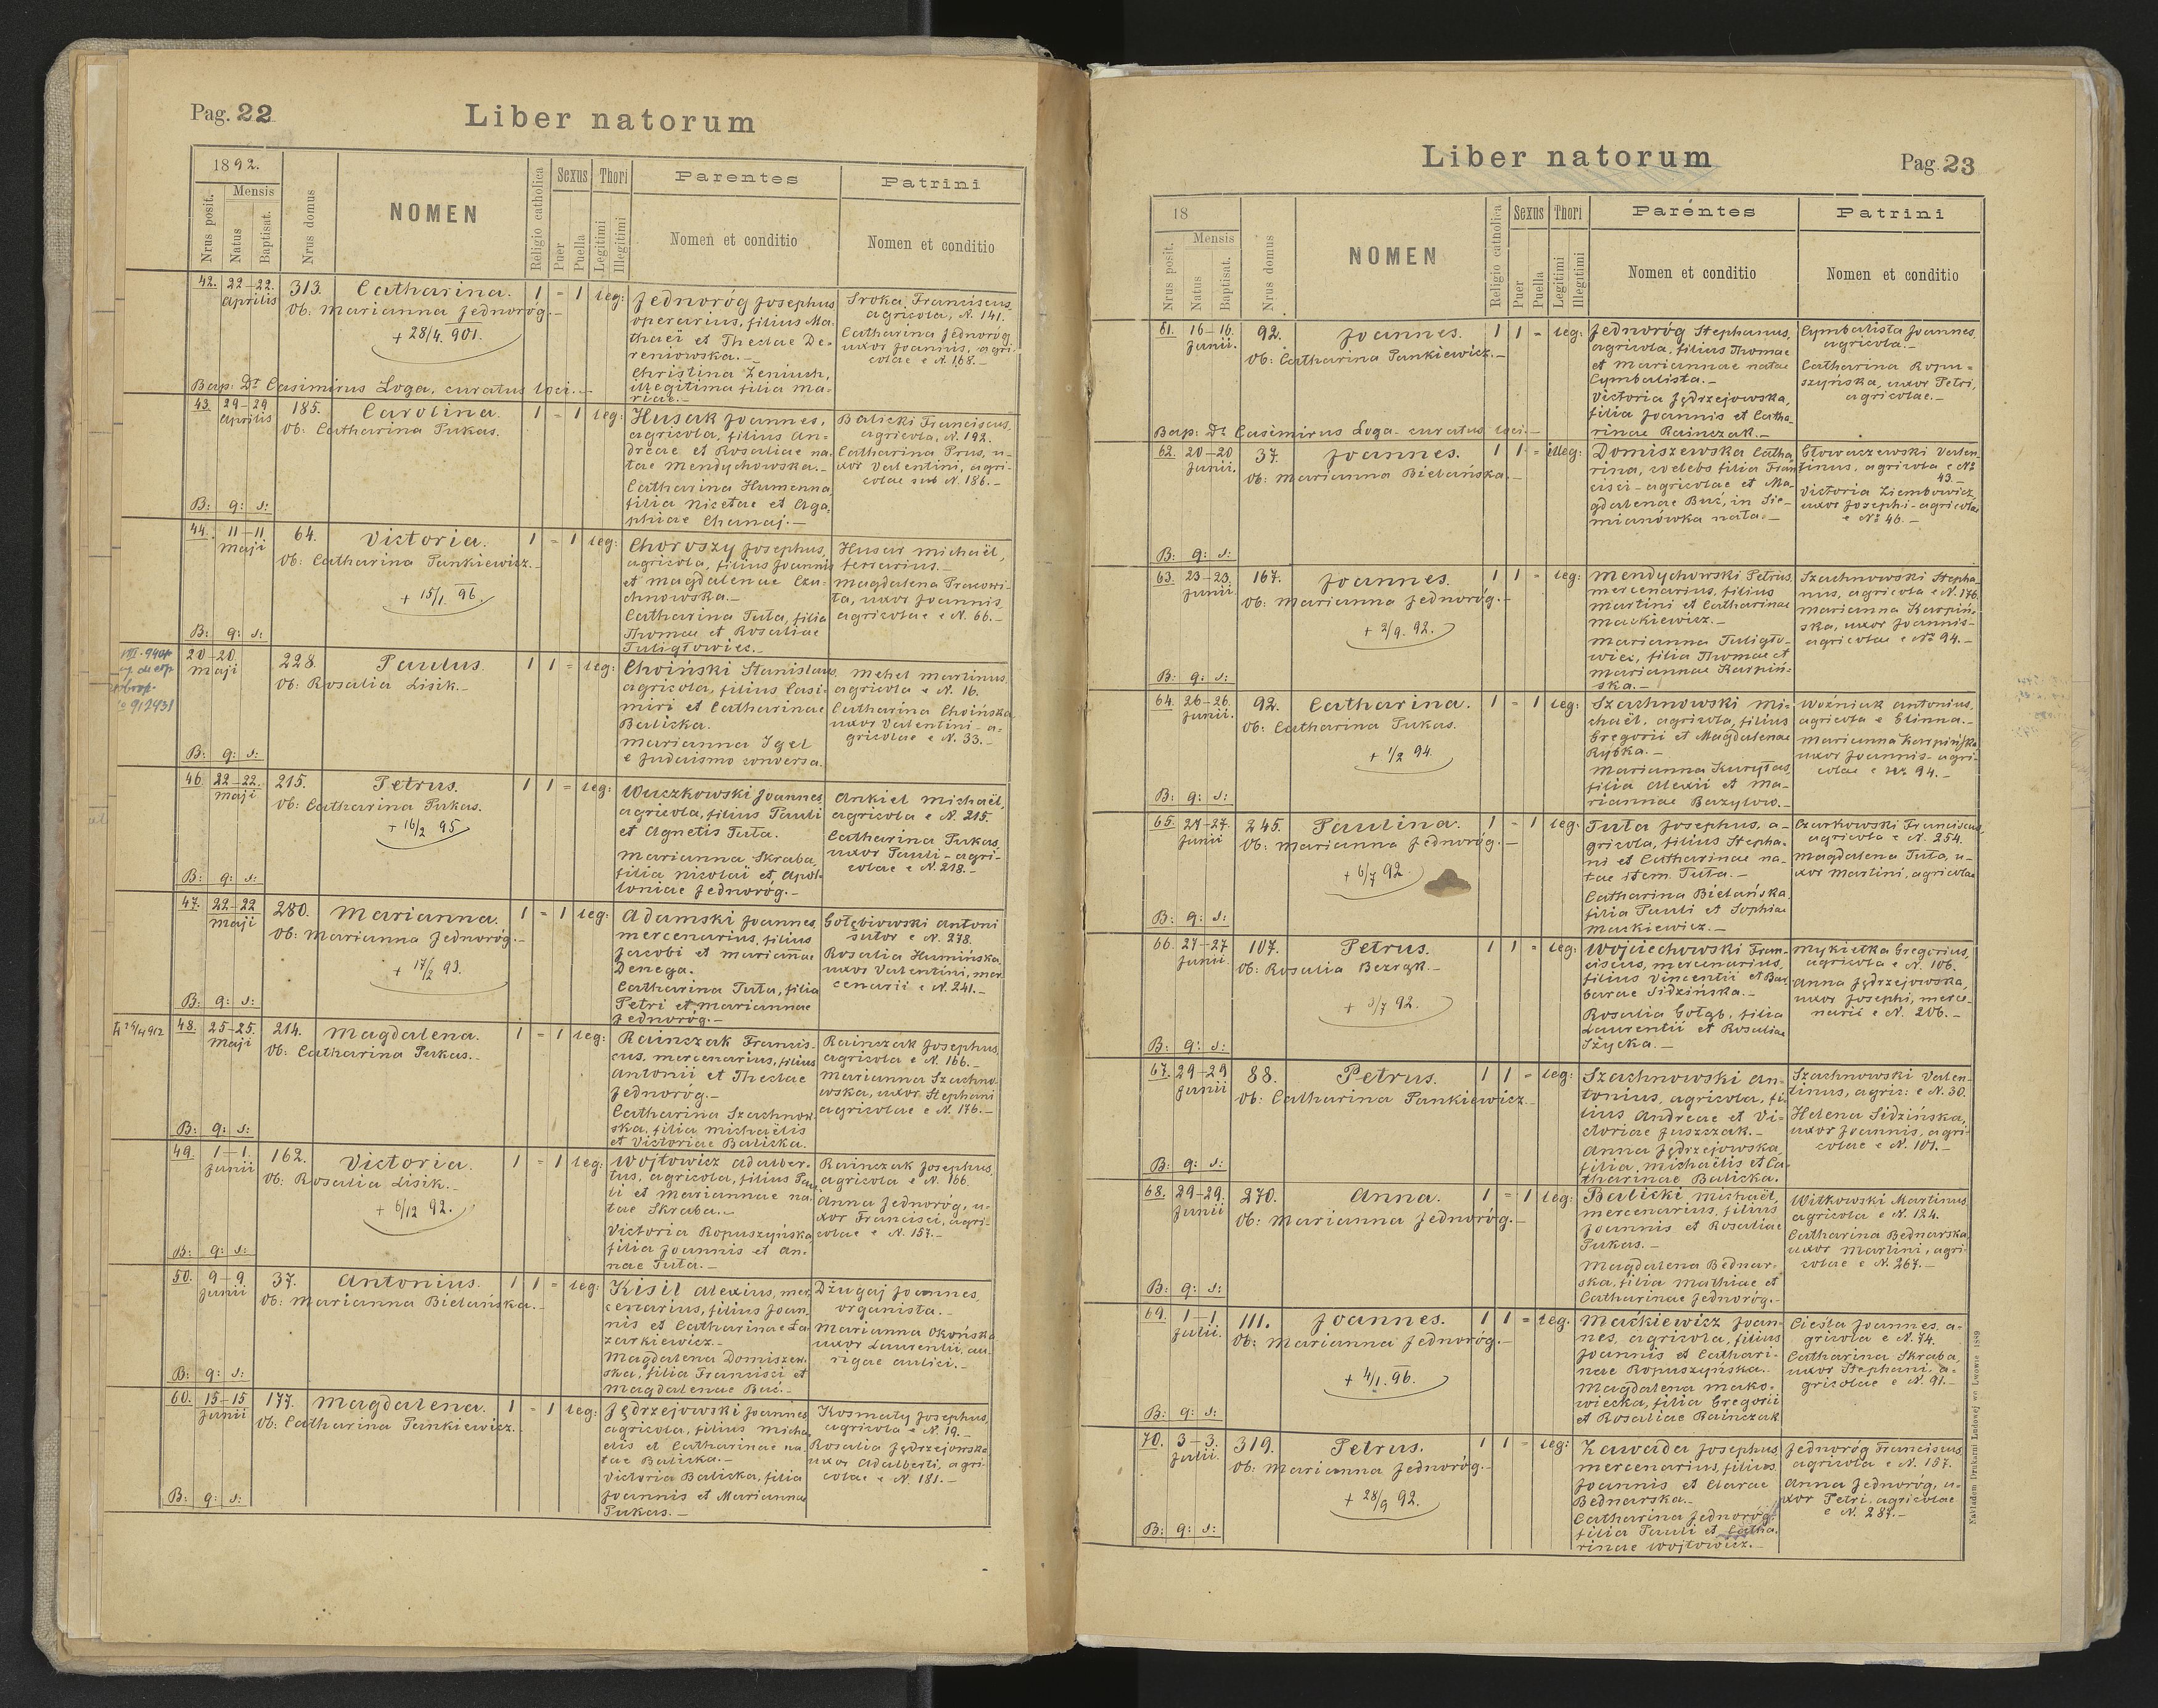 Pag. 22
Liber natorum
1892.
Nrus posit.
Mensis
Natus
Baptisat.
Nrus domus
NOMEN
Religio catholica
Sexus
Puer
Puella
Thori
Legitimi
Illegitimi
Parentes
Nomen et conditio
Patrini
Nomen et conditio
42. 22-22. Aprilis 313. Catharina. 1 = 1 leg:
Ob: Marianna Jednoróg.-
+ 28/4. 901.
Jednoróg Josephus
operarius, filius Ma-
thaëi et Theclae De-
reniowska.-
Christina Zeniuch,
illegitima filia Ma-
riae.-
Sroka Franciscus,
agricola, N. 141.
Catharina Jednoróg
uxor Joannis, agri-
colae e N. 168.-
Bap: Dr Casimirus Loga, curatus loci.-
43. 29-29 Aprilis 185. Carolina. 1 = 1 leg:
Ob: Catharina Pukas.
Husak Joannes,
agricola, filius An-
dreae et Rosaliae na-
tae Mendychowska.-
Catharina Humenna,
filia Nicetae et Aga-
phiae Chanaj.-
Balicki Franciscus,
agricola, N. 192.
Catharina Prus, u-
xor Valentini, agri-
colae sub N. 186.-
B: q: s:
44. 11-11 Maji 64. Victoria. 1 = 1 leg:
Ob: Catharina Pankiewicz.-
+ 15/1. 96.
Choroszy Josephus,
agricola, filius Joannis
et Magdalenae Cza-
chnowska.-
Catharina Tuta, filia
Thomae et Rosaliae
Tuligłowiec.-
Husar Michaël,
ferrarius.-
Magdalena Pracowi-
ta, uxor Joannis
agricolae e N. 66.-
B: q: s:
20-20 Maji 228. Paulus. 1 1 = leg:
Ob: Rosalia Lisik.-
Choiński Stanislaus,
agricola, filius Casi-
miri et Catharinae
Balicka.
Marianna Igel
e Judaismo conversa.
Mehel Martinus
agricola e N. 16.
Catharina Choińska,
uxor Valentini - a-
gricolae e N. 33.-
B: q: s:
46. 22-22. Maji 215. Petrus. 1 1 = leg:
Ob: Catharina Pukas.
+ 16/2 95
Wuczkowski Joannes,
agricola, filius Pauli
et Agnetis Tuta.
Marianna Skraba,
filia Nicolaï et Apol-
loniae Jednoróg.-
Ankiel Michaël,
agricola e N. 215.
Catharina Pukas,
uxor Pauli - agri-
colae e N. 218.-
B: q: s:
47. 22-22 Maji 280. Marianna. 1 = 1 leg:
Ob: Marianna Jednoróg.-
+ 17/2 93.
Adamski Joannes,
mercenarius, filius
Jacobi et Marianae
Denega.
Catharina Tuta, filia
Petri et Mariannae
Jednoróg.-
Gołębiowski Antoni
sutor e N. 278.
Rosalia Humińska,
uxor Valentini, mer-
cenarii e N. 241.-
B: q: s:
48. 25-25. Maji 214. Magdalena. 1 = 1 leg:
Ob: Catharina Pukas.-
Rainczak Francis-
cus, mercenarius, filius
Antonii et Theclae
Jednoróg.-
Catharina Szachnow-
ska, filia Michaëlis
et Victoriae Balicka.
Rainczak Josephus,
agricola e N. 166.-
Marianna Szachno-
wska, uxor Stephani
agricolae e N. 176.-
B: q: s:
49. 1-1. Junii 162. Victoria. 1 = 1 leg:
Ob: Rosalia Lisik.-
+ 6/12 92.
Wojtowicz Adalber-
tus, agricola, filius Pau-
li et Mariannae na-
tae Skraba.-
Victoria Ropuszyńska
filia Joannis et An-
nae Tuta.-
Rainczak Josephus,
agricola e N. 166.
Anna Jednoróg, u-
xor Francisci, agri-
colae e N. 157.-
B: q: s:
50. 9-9 Junii 37. Antonius. 1 1 = leg:
Ob: Marianna Bielańska.-
Kisil Alexius, mer-
cenarius, filius Joan-
nis et Catharinae La-
zarkiewicz.-
Magdalena Domiszew-
ska, filia Francisci et
Magdalenae Buć.-
Dżugaj Joannes,
organista.-
Marianna Okońska
uxor Laurentii, au-
rigae aulici.-
B: q: s:
60. 15-15 Junii 177. Magdalena. 1 = 1 leg:
Ob: Catharina Pankiewicz.
Jędrzejowski Joannes
agricola, filius Micha-
elis et Catharinae na-
tae Balicka.-
Victoria Balicka, filia
Joannis et Marianna
Pukas.-
Kosmaty Josephus,
agricola e N. 19.-
Rosalia Jędrzejowska
uxor Adalberti, agri-
colae e N. 181.-
B: q: s:
Liber natorum
Pag. 23
18
Nrus posit.
Mensis
Natus
Baptisat.
Nrus domus
NOMEN
Religio catholica
Sexus
Puer
Puella
Thori
Legitimi
Illegitimi
Parentes
Nomen et conditio
Patrini
Nomen et conditio
61. 16-16. Junii. 92. Joannes. 1 1 - leg:
Ob: Catharina Pankiewicz.-
Jednoróg Stephanus,
agricola, filius Thomae
et Mariannae natae
Cymbalista.-
Victoria Jędrzejowska,
filia Joannis et Catha-
rinae Rainczak.-
Cymbalista Joannes,
agricola.-
Catharina Ropu-
szyńska, uxor Petri,
agricolae.-
Bap: Dr Casimirus Loga - curatus loci.-
62. 20-20 Junii. 37. Joannes. 1 1 = illeg:
Ob: Marianna Bielańska.-
Domiszewska Catha-
rina, coelebs filia Fran-
cisci - agricolae et Ma-
gdalenae Buć, in Sie-
mianówka nata.-
Głowaczewski Valen-
tinus, agricola e No
43.-
Victoria Ziembowicz,
uxor Josephi - agricolae
e No 46.-
B: q: s:
63. 23-23. Junii 167. Joannes. 1 1 = leg:
Ob: Marianna Jednoróg.-
+ 2/9. 92.
Mendychowski Petrus,
mercenarius, filius
Martini et Catharinae
Mackiewicz.-
Marianna Tuligło-
wiec, filia Thomae et
Mariannae Karpiń-
ska.-
Szachnowski Stepha-
nus, agricola e N. 176.
Marianna Karpiń-
ska, uxor Joannis -
agricolae e No 94.-
B: q: s:
64. 26-26. Junii. 92. Catharina. 1 = 1 leg:
Ob: Catharina Pukas.
+ 1/2 94.
Szachnowski Mi-
chaël, agricola, filius
Gregorii et Magdalenae
Rybka.-
Marianna Kurytas,
filia Alexii et Ma-
riannae Bazylow.-
Woźniak Antonius,
agricola e Glinna.-
Marianna Karpińska
uxor Joannis - agri-
colae e Nr 94.-
B: q: s:
65. 27-27. Junii 245. Paulina. 1 = 1 leg:
Ob: Marianna Jednoróg.-
+ 6/7 92.
Tuta Josephus, a-
gricola, filius Stepha-
ni et Catharinae na-
tae item Tuta.-
Catharina Bielańska,
filia Pauli et Sophiae
Mackiewicz.-
Czarkowski Franciscus,
agricola e N. 254.
Magdalena Tuta, u-
xor Martini, agricolae
B: q: s:
66. 27-27 Junii. 107. Petrus. 1 1 = leg:
Ob: Rosalia Bezrąk.-
+ 3/7 92.
Wojciechowski Fran-
ciscus, mercenarius,
filius Vincentii et Bar-
barae Sidzińska.-
Rosalia Gołąb, filia
Laurentii et Rosaliae
Iżycka.-
Mykietka Gregorius,
agricola e N. 106.
Anna Jędrzejowska,
uxor Josephi, merce-
narii e N. 206.-
B: q: s:
67. 29-29 Junii 88. Petrus. 1 1 = leg:
Ob: Catharina Pankiewicz.-
Szachnowski An-
tonius, agricola, fi-
lius Andreae et Vi-
ctoriae Juszczak.-
Anna Jędrzejowska,
filia Michaëlis et Ca-
tharinae Balicka.
Szachnowski Valen-
tinus, agric: e N. 30.
Helena Sidzińska,
uxor Joannis, agri-
colae e N. 101.-
B: q: s:
68. 29-29. Junii 270. Anna. 1 = 1 leg:
Ob: Marianna Jednoróg.-
Balicki Michaël,
mercenarius, filius
Joannis et Rosaliae
Pukas.-
Magdalena Bednar-
ska, filia Mathiae et
Catharinae Jednoróg.-
Witkowski Martinus
agricola e N. 124.
Catharina Bednarska,
uxor Martini, agri-
colae e N. 267.-
B: q: s:
69. 1-1 Julii. 111. Joannes. 1 1 = leg:
Ob: Marianna Jednoróg.-
+ 4/1. 96.
Maćkiewicz Joan-
nes, agricola, filius
Joannis et Cathari-
nae Ropuszyńska.-
Magdalena Mako-
wiecka, filia Gregorii
et Rosaliae Rainczak
Cieśla Joannes, a-
gricola e N. 74.
Catharina Skraba,
uxor Stephani, a-
gricolae e N. 91.-
B: q: s:
70. 3-3. Julii. 319. Petrus. 1 1 = leg:
Ob: Marianna Jednoróg.-
+ 28/9 92.
Zawada Josephus,
mercenarius, filius
Joannis et Clarae
Bednarska.-
Catharina Jednoróg,
filia Pauli et Catha-
rinae Wojtowicz.-
Jednoróg Franciscus
agricola e N. 157.
Anna Jednoróg, u-
xor Petri, agricolae
e N. 287.-
B: q: s:
Nakładem Drukarni Ludowej we Lwowie 1889